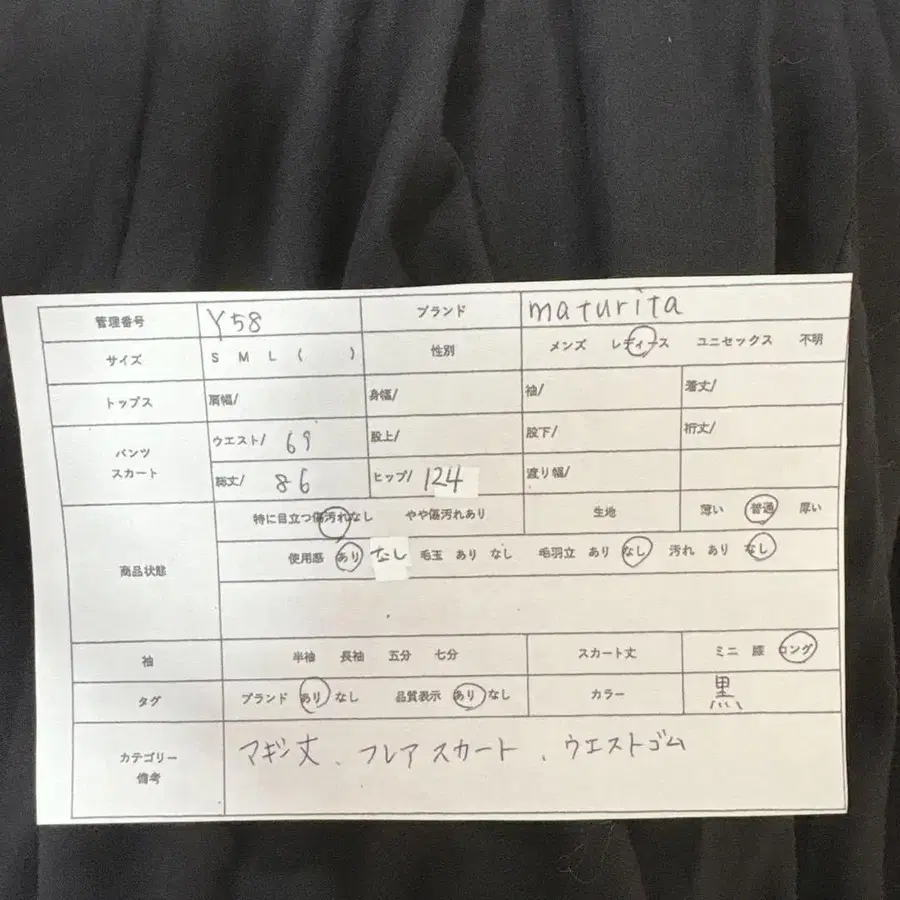 管理番号 Y58 ブランド maturita
サイズ S M L ( ) 性別 メンズ レディース ユニセックス 不明
トップス 肩幅/ 身幅/ 袖/ 着丈/
パンツ スカート ウエスト/ 69 股上/ 股下/ 裄丈/
総丈/ 86 ヒップ/ 124 渡り幅/
商品状態 特に目立つ傷汚れなし やや傷汚れあり 生地 薄い 普通 厚い
使用感 あり なし 毛玉 あり なし 毛羽立 あり なし 汚れ あり なし
袖 半袖 長袖 五分 七分 スカート丈 ミニ 膝 ロング
タグ ブランド あり なし 品質表示 あり なし カラー 黒
カテゴリー 備考 マギン丈、フレアスカート、ウエストゴム